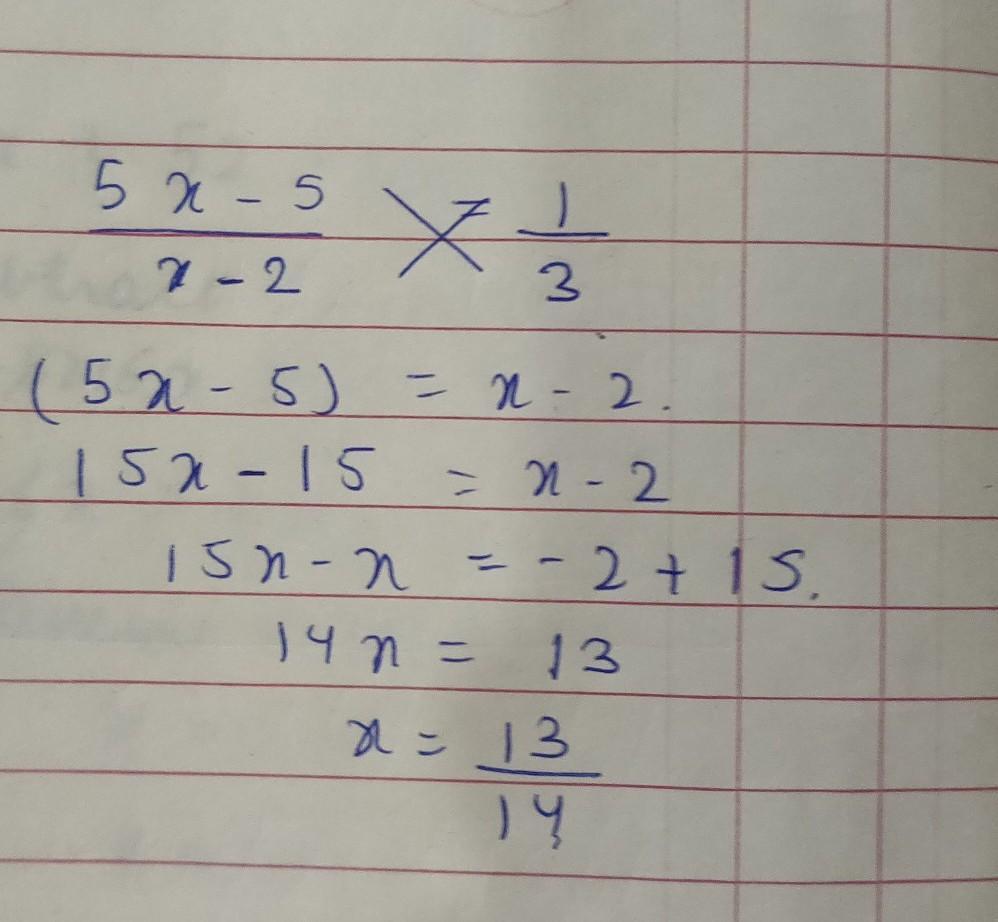 5x - 5 / x - 2 = 1 / 3
(5x - 5) = x - 2.
15x - 15 = x - 2
15x - x = -2 + 15.
14x = 13
x = 13 / 14